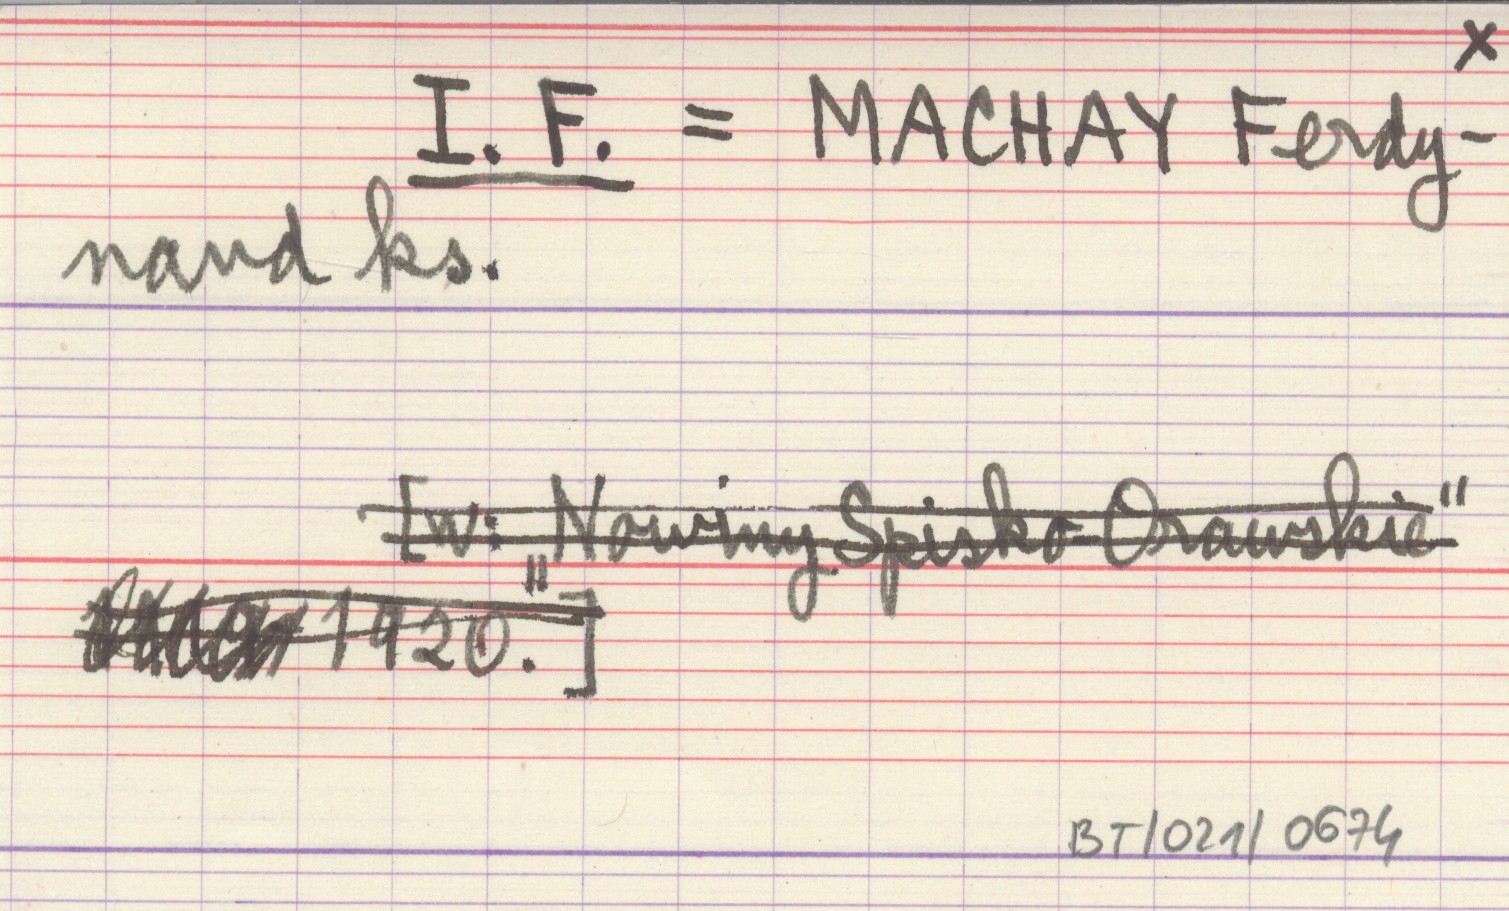 x
I. F. = MACHAY Ferdy-
nand ks.
[w: „Nowiny Spisko-Orawskie"
1920.]
BT/021/0674